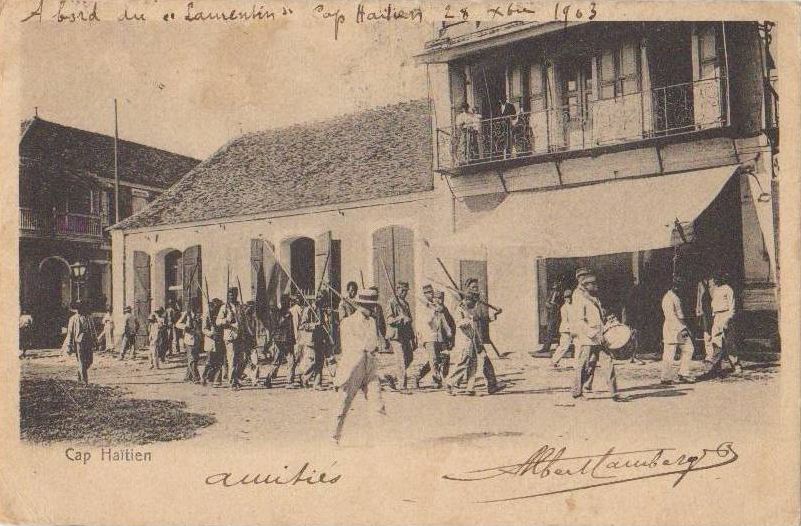 A bord du "Lamentin" Cap Haïtien 28 xbre 1903
Cap Haïtien
amitiés
Albert